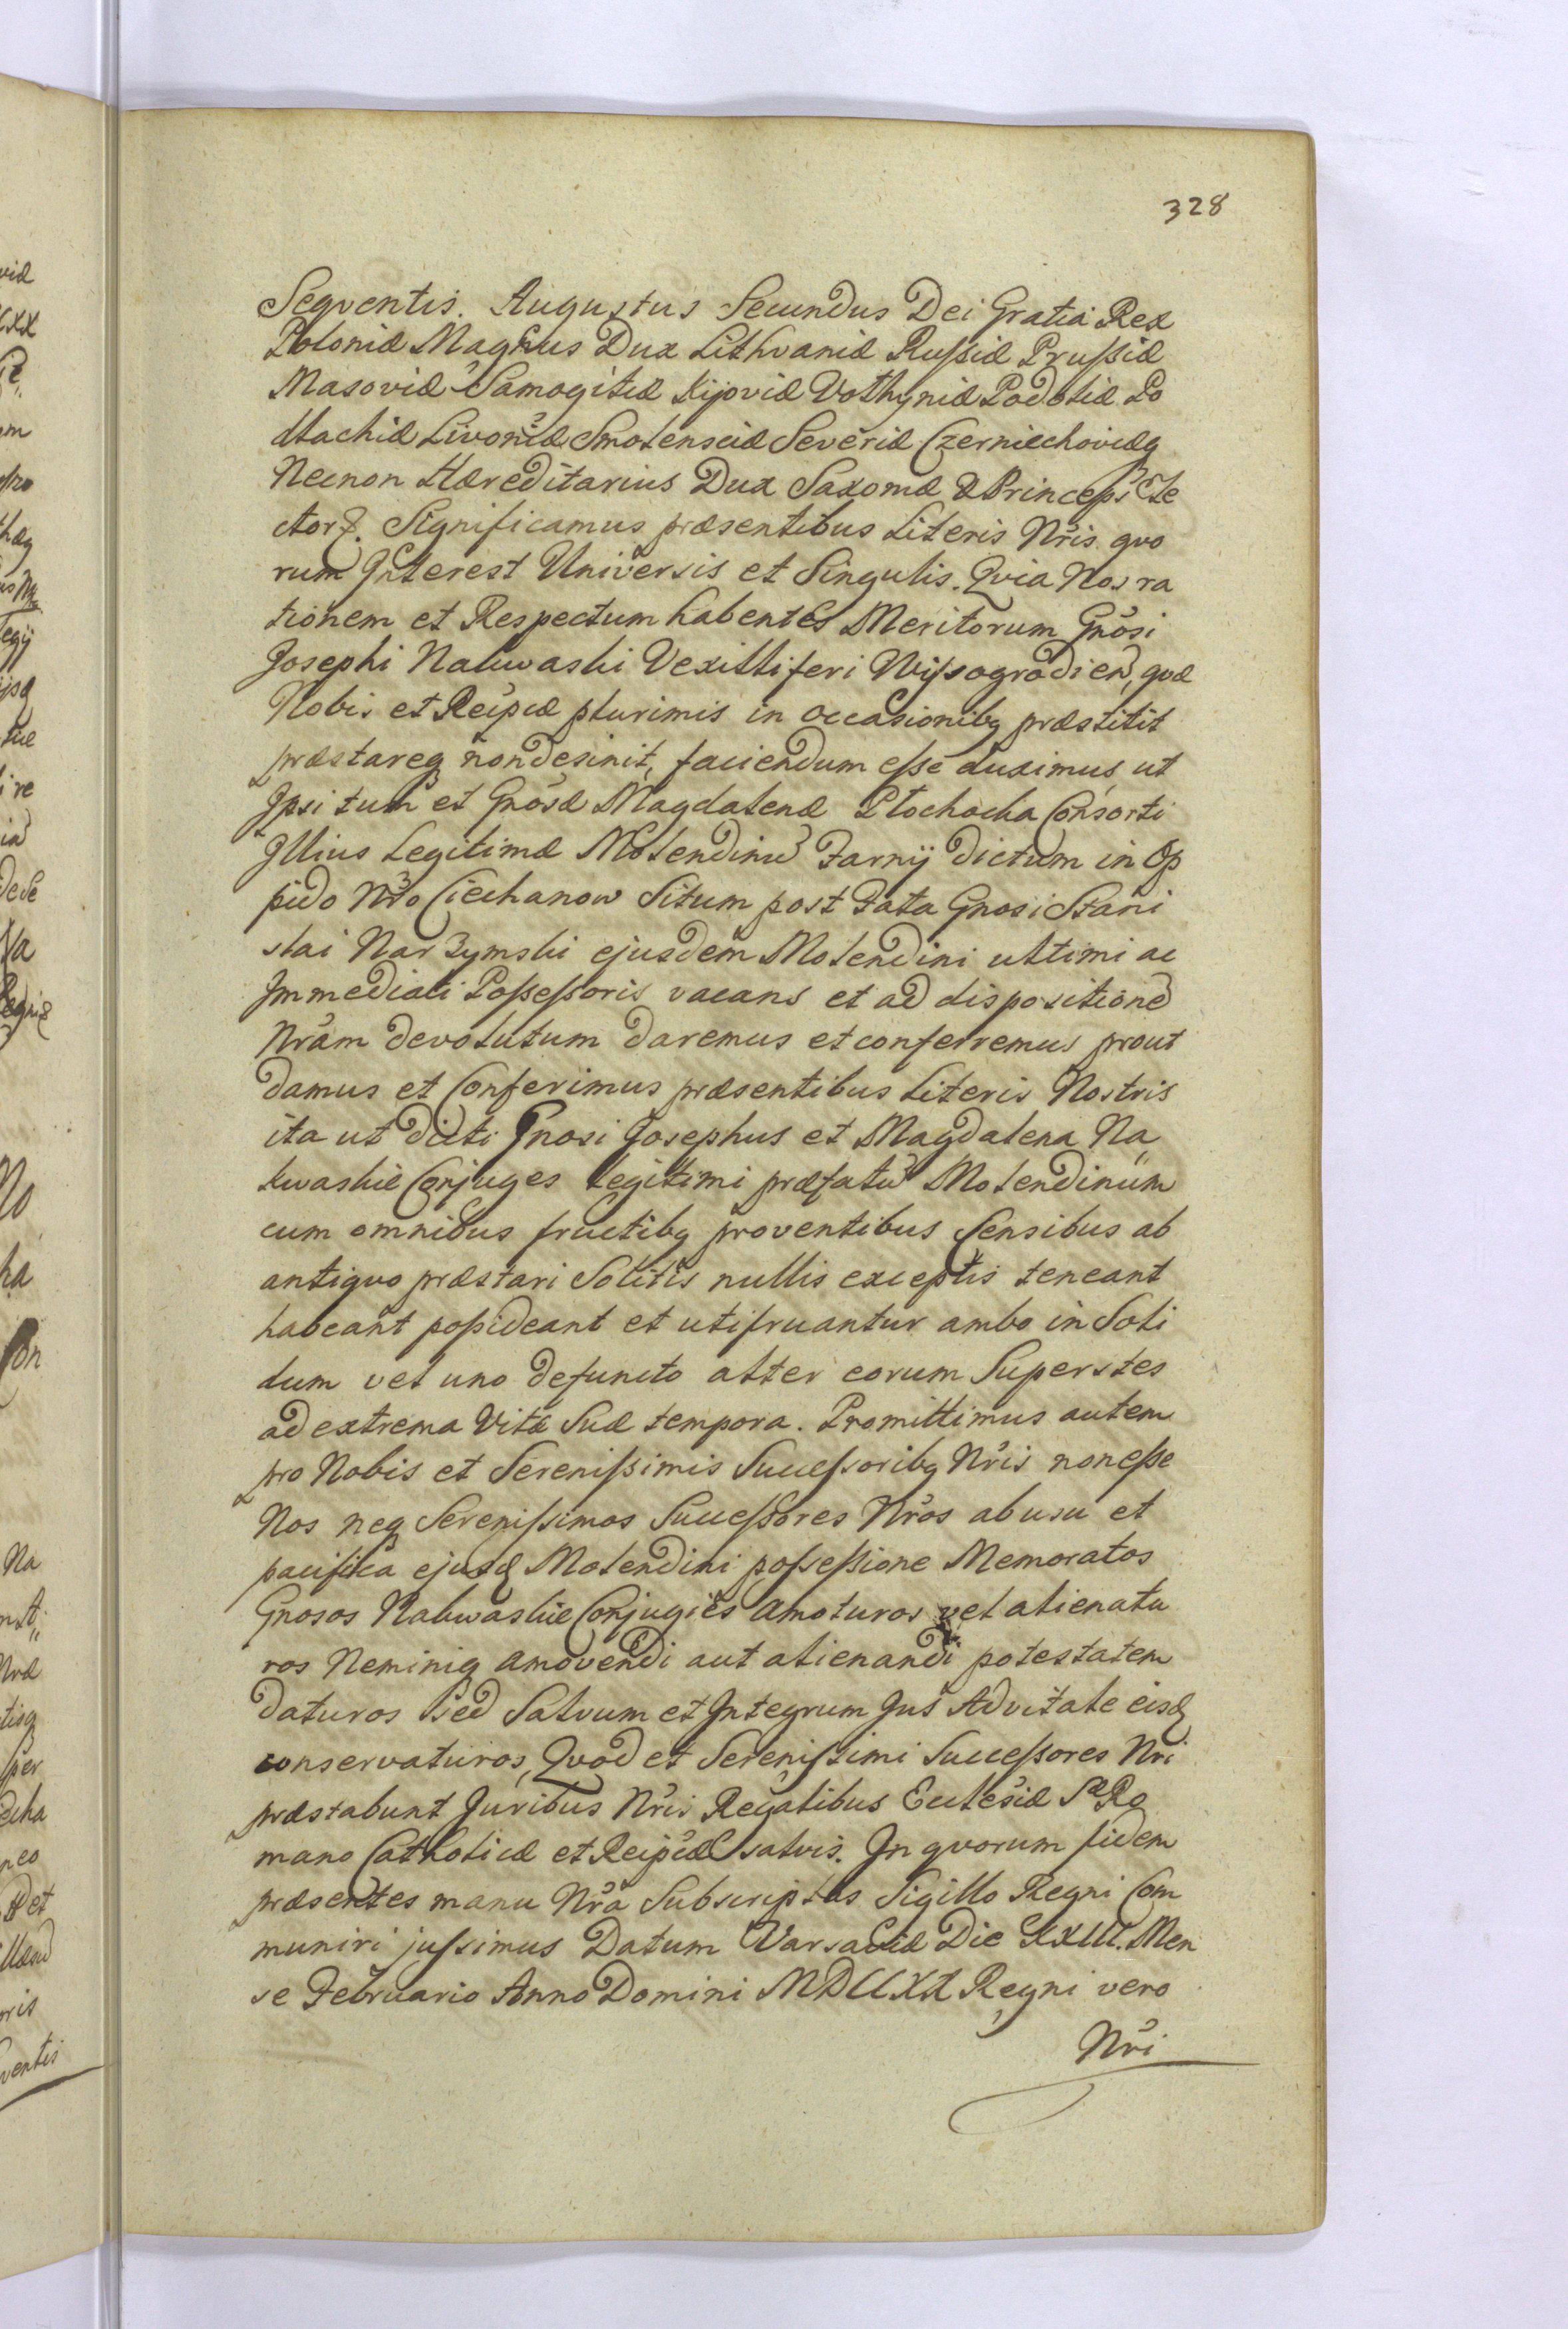 328
Seqventis. Augustus Secundus Dei Gratia Rex
Poloniæ Magnus Dux Lithvaniæ Rußiæ Prußiæ
Masoviæ Samogitiæ Kijoviæ Volhyniæ Podoliæ Po
dlachiæ Livoniæ Smolensciæ Severiæ Czerniechoviæq
Necnon Hæreditarius Dux Saxoniæ & Princeps Ele
ctor &. Significamus præsentibus Literis Nris qvo
rum Interest Universis et Singulis. Qvia Nos ra
tionem et Respectum habentes Meritorum Gnosi
Josephi Nakwaski Vexilliferi Wißogrodien, qvæ
Nobis et Reipcæ plurimis in occasionibq præstitit
præstareq non desinit, faciendum eße duximus ut
Ipsi tum et Gnosæ Magdalenæ Plochocka Consorti
Illius Legitimæ Molendinu Farnÿ dictum in Op
pido Nro Ciechanow Situm post Fata Gnosi Stani
slai Narzymski ejusdem Molendini ultimi ac
Immediati Poßeßoris vacans et ad dispositione
Nram devolutum daremus et conferremus prout
damus et Conferimus præsentibus Literis Nostris
ita ut dicti Gnosi Josephus et Magdalena Na
kwaskie Conjuges legitimi præfatu Molendinum
cum omnibus fructibq proventibus Censibus ab
antiqvo præstari Solitis nullis exceptis teneant
habeant poßideant et utifruantur ambo in Soli
dum vel uno defuncto alter eorum Superstes
ad extrema Vitæ Suæ tempora. Promittimus autem
pro Nobis et Serenißimis Succeßoribq Nris non eße
Nos neq Serenißimos Succeßores Nros ab usu et
pacifica ejusd Molendini poßeßione Memoratos
Gnosos Nakwaskie Conjuges amoturos vel alienatu
ros Neminiq amovendi aut alienandi potestatem
daturos Sed Salvum et Integrum Jus Advitale eisd
conservaturos, Qvod et Serenißimi Succeßores Nri
præstabunt Juribus Nris Regalibus Ecclesiæ Sæ Ro
mano Catholicæ et Reipcæ salvis. In qvorum fidem
præsentes manu Nra Subscriptas Sigillo Regni Com
muniri jußimus Datum Varsaviæ Die XXIII. Men
se Februario Anno Domini MDCCXX Regni vero
Nri